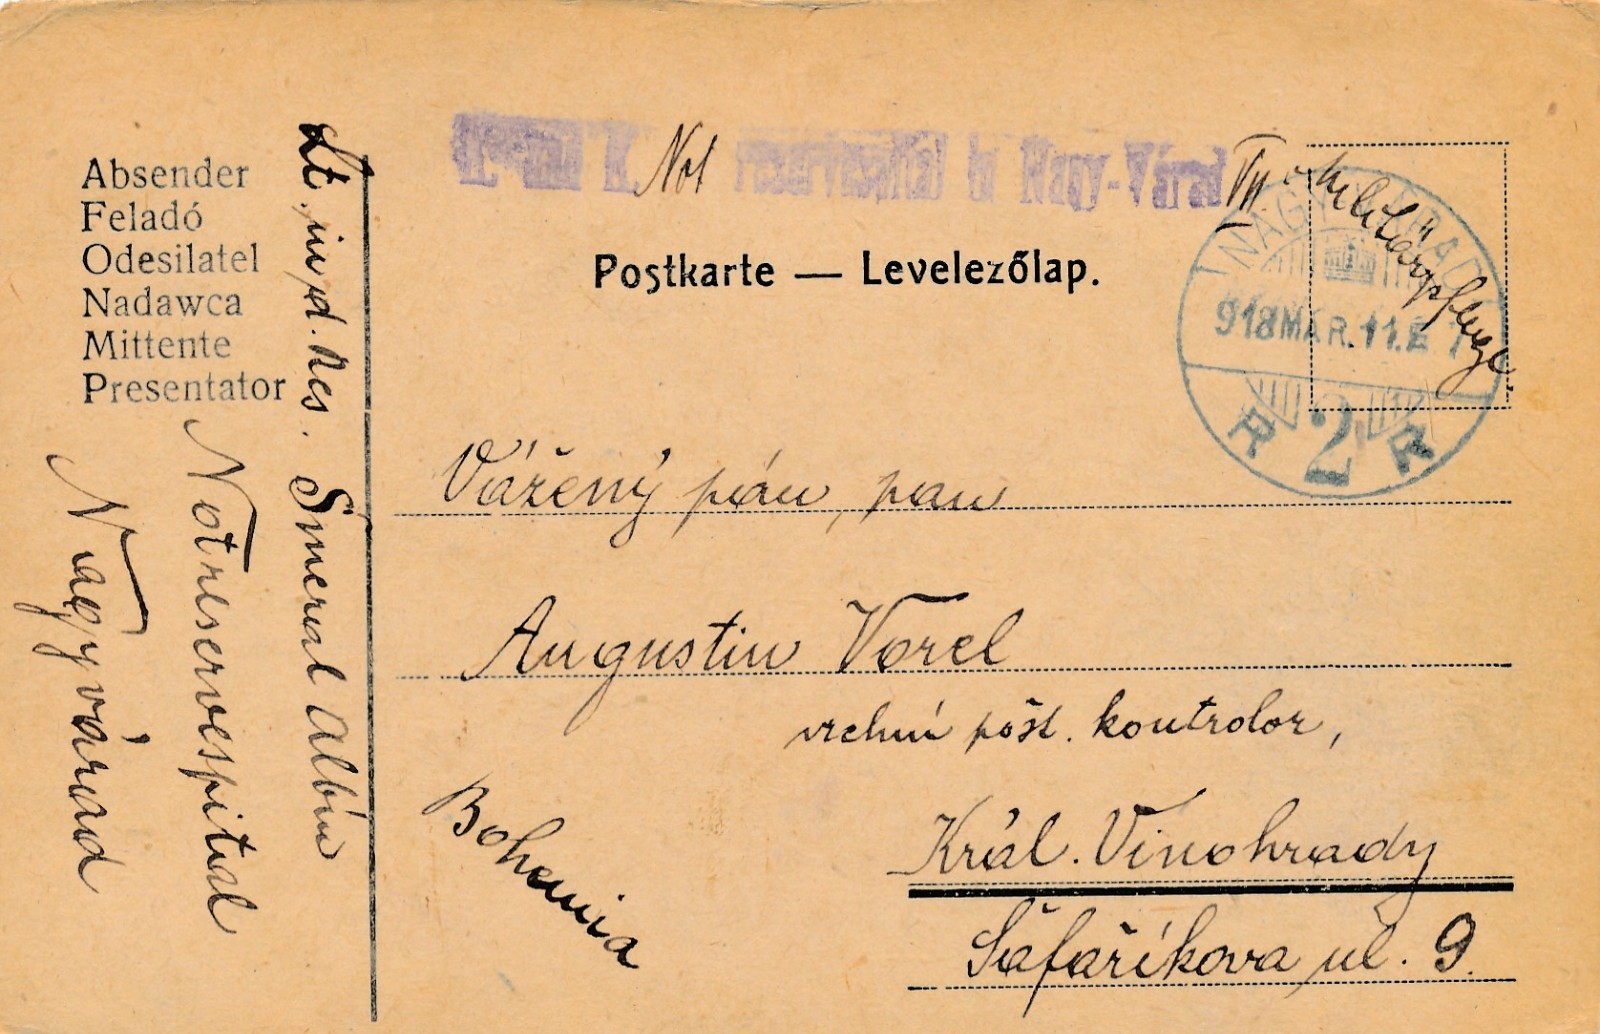 Absender
Feladó
Odesilatel
Nadawca
Mittente
Presentator
Lt. in d. Res. Smerial Albín
Notreservespital
Nagyvárad
K. Not reservespital in Nagy-Várad
Militärpflege
NAGYVÁRAD
918 MÁR. 11.
2
Postkarte — Levelezőlap.
Vážený pán, pan
Augustin Vorel
vrchní pošt. kontrolor,
Král. Vinohrady
Šafaříkova ul. 9.
Bohemia